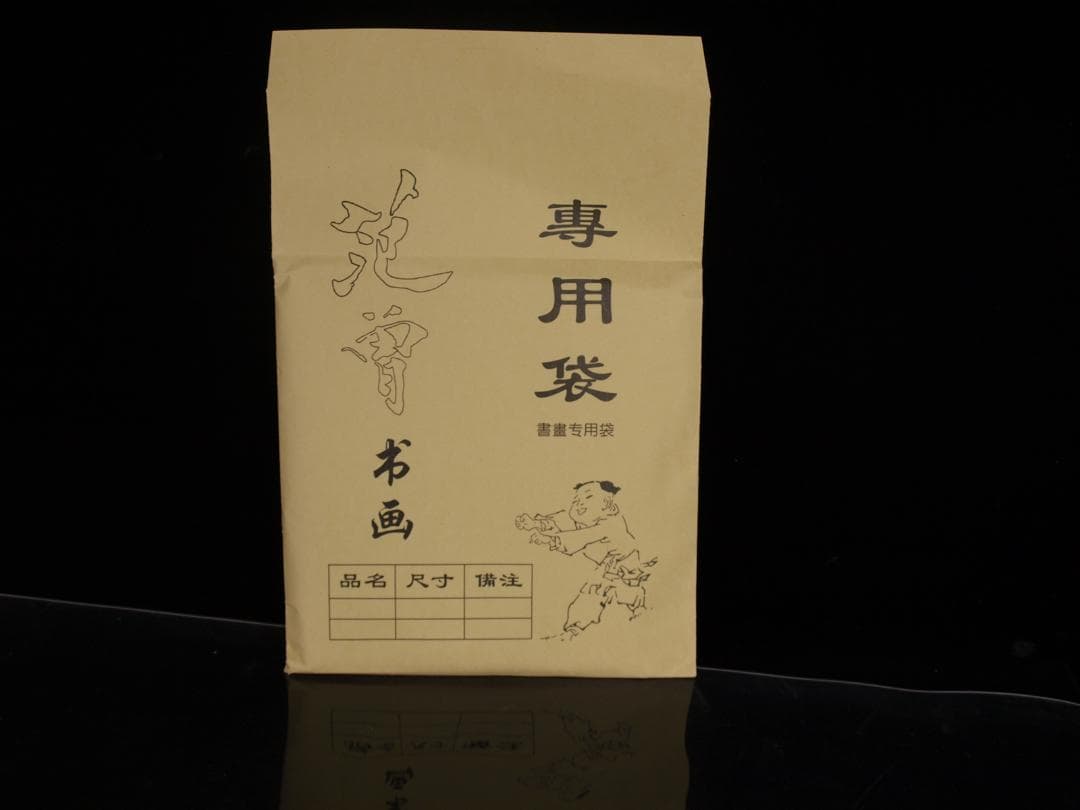 專用袋
書畫专用袋
范曾
书画
品名 尺寸 備注